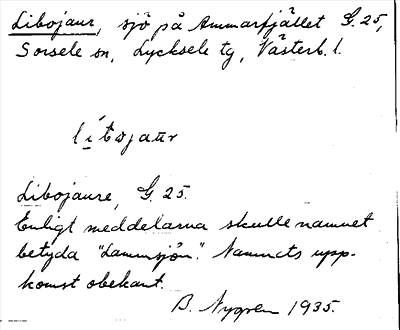 Libojaur, sjö på Ammarfjället G. 25,
Sorsele sn, Lycksele tg, Västerb. l.
Libojaure, G. 25.
Enligt meddelarna skulle namnet
betyda "Lammsjön". Namnets upp-
komst obekant.
B. Nygren 1935.